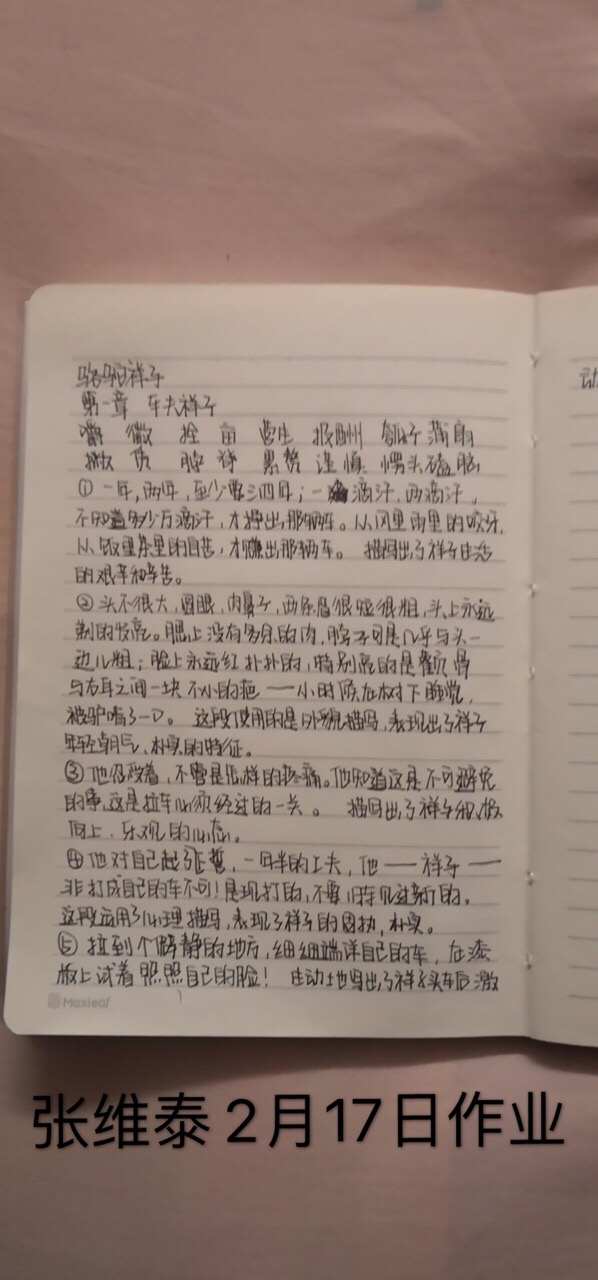 骆驼祥子
第一章 车夫祥子
嚼 微 拴 亩 营生 报酬
赁 累赘 谨慎 愣头磕脑
①一年,两年,至少有三四年;一滴汗,两滴汗,
不知道多少万滴汗,才挣出那辆车。从风里雨里的咬牙,
从饭里茶里的自苦,才赚出那辆车。 描写出了祥子生活
的艰辛和辛苦。
②头不很大,圆眼,肉鼻子,两条眉很短很粗,头上永远
剃的发亮。腮上没有多余的肉,脖子可是几乎与头一
边儿粗;脸上永远红扑扑的,特别亮的是颧骨
与右耳之间一块不小的疤——小时候在树下睡觉,
被驴啃了一口。 这段使用的是外貌描写,表现出了祥子
年轻朝气,朴实的特征。
③他 不管是怎样的疼痛。他知道这是不可避免
的事,这是拉车必须经过的一关。 描写出了祥子积极
向上,乐观的心态。
④他对自己起张誓,一年半的工夫,他——祥子——
非打成自己的车不可!是现打的,不要旧车见过新的。
这段运用了心理描写,表现了祥子的固执,朴实。
⑤拉到个僻静的地方,细细端详自己的车,在漆
板上试着照照自己的脸! 生动地写出了祥子买车后激
Maxleaf
张维泰2月17日作业